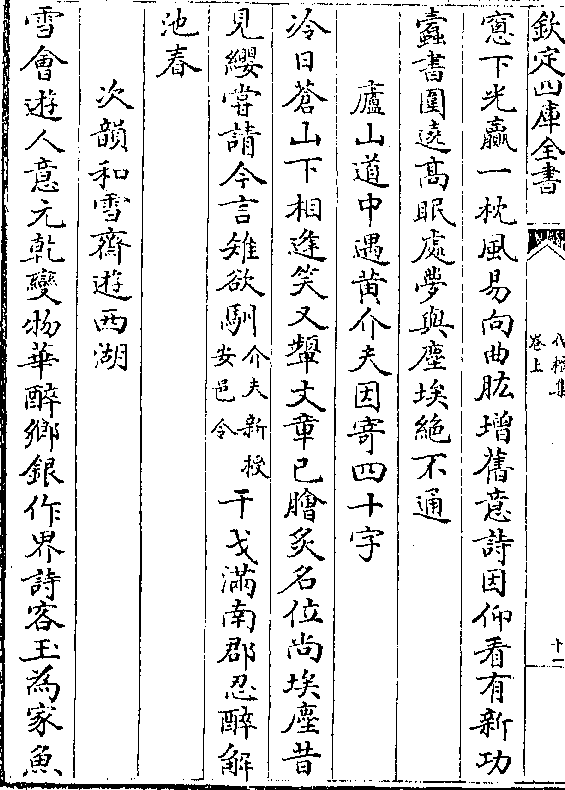 欽定四庫全書
伐檀集
卷上
十一
窻下光贏一枕風易向曲肱增舊意詩因仰看有新功
蠹書圍遶髙眠處夢與塵埃絶不通
廬山道中遇黄介夫因寄四十字
冷日蒼山下相逢笑又顰文章已膾炙名位尚埃塵昔
見纓嘗請今言雉欲馴介夫新授安邑令干戈滿南郡忍醉解
池春
次韻和雪齋遊西湖
雪會遊人意元乾變物華醉鄉銀作界詩客玉為家魚